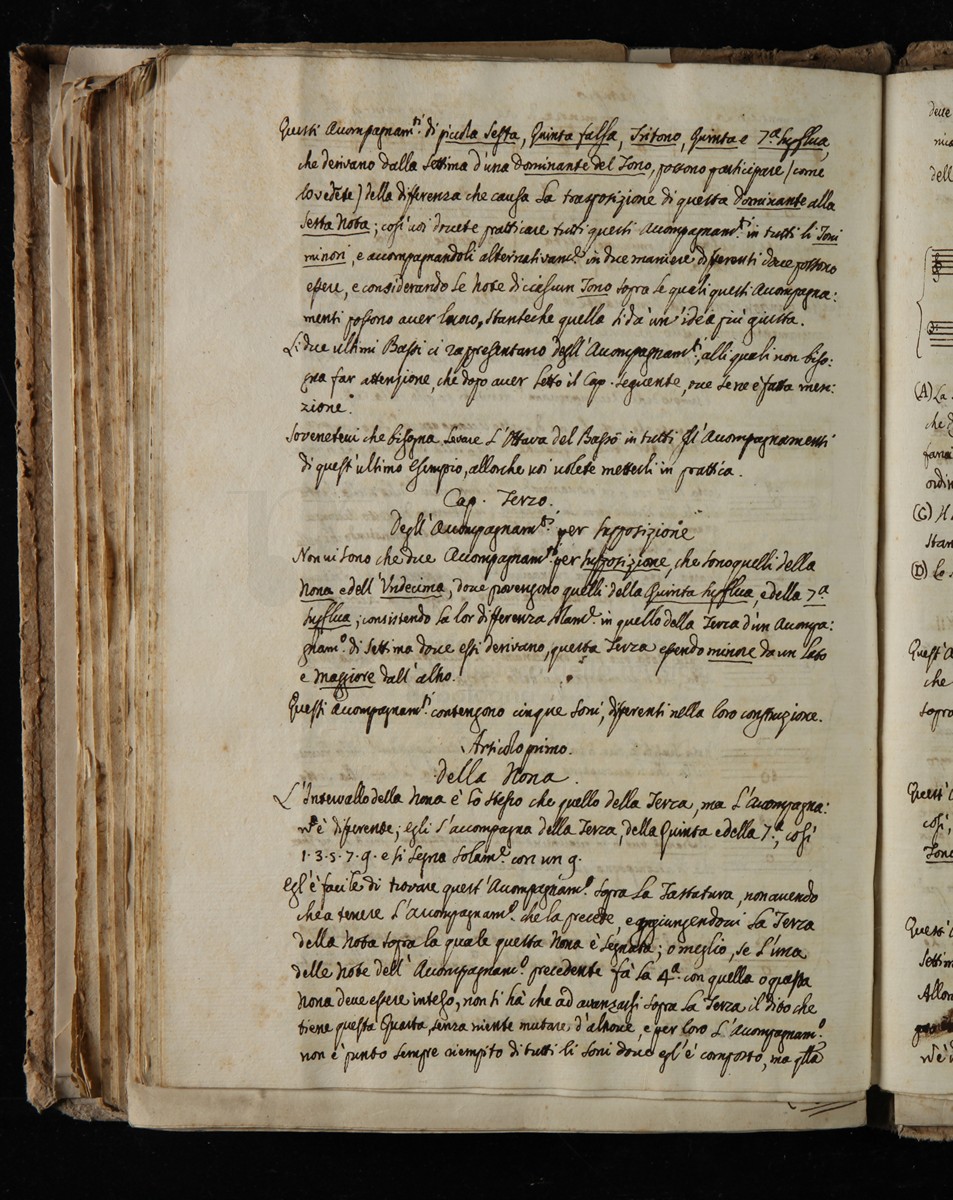 Questi Acompagnam.ti di piccola Sesta, Quinta falsa, Tritono, Quinta e 7.a supflua,
che derivano dalla Settima d'una dominante del Tono, possono participare (come
lo vedete) della differenza che causa La trasposizione di questa dominante alla
Sesta Nota; così voi dovete pratticare tutti questi Acompagnam.ti in tutti li Toni
minori, e accompagnandoli alternativam.e in due maniere differenti dove possono
essere, e considerando le Note di ciascun Tono sopra le quali questi Acompagna:
menti possono aver luogo, stanteche quella ti dà un'idea più giusta.
Li due ultimi Bassi ci rappresentano dell'Acompagnam.ti, alli quali non biso:
gna far attenzione, che dopo aver letto il Cap. seguente, ove se ne è fatta men:
zione.
Sovenetevi che bisogna levare L'Ottava del Basso in tutti gl'Acompagnamenti
di quest'ultimo Esempio, allorche voi volete metterli in prattica.
Cap. Terzo.
Degl'Acompagnam.ti per supposizione
Non vi sono che due Acompagnam.ti per supposizione, che sono quelli della
Nona e dell'Undecima, dove provengono quelli della Quinta supflua, e della 7.a
supflua; consistendo la lor differenza solam.e in quello della Terza d'un Acompa:
gnam.o di Settima dove essi derivano, questa Terza essendo minore da un lato
e maggiore dall'altro.
Questi Acompagnam.ti contengono cinque Soni, differenti nella loro construzione.
Articolo primo.
della Nona.
L'Intervallo della Nona è lo stesso che quello della Terza, ma L'Acompagna:
m.to è differente; egli s'accompagna della Terza, della Quinta e della 7.a, così
1. 3. 5. 7. 9. e si segna solam.e con un 9.
Egl'è facile di trovare quest'Acompagnam.o sopra la Tastatura, non avendo
che a tenere L'Acompagnam.o che la precede, e aggiungendovi la Terza
della Nota sopra la quale questa Nona è segnata; o meglio, se l'una
delle Note dell'Acompagnam.o precedente fà la 4.a con quella o questa
Nona deve essere inteso, non ti hà che ad avanzarsi sopra la Terza il dito che
tiene questa Quarta, senza niente mutare d'altrove, e per loro L'Acompagnam.o
non è punto sempre riempito di tutti li Soni dove egl'è composto, ma q.lla